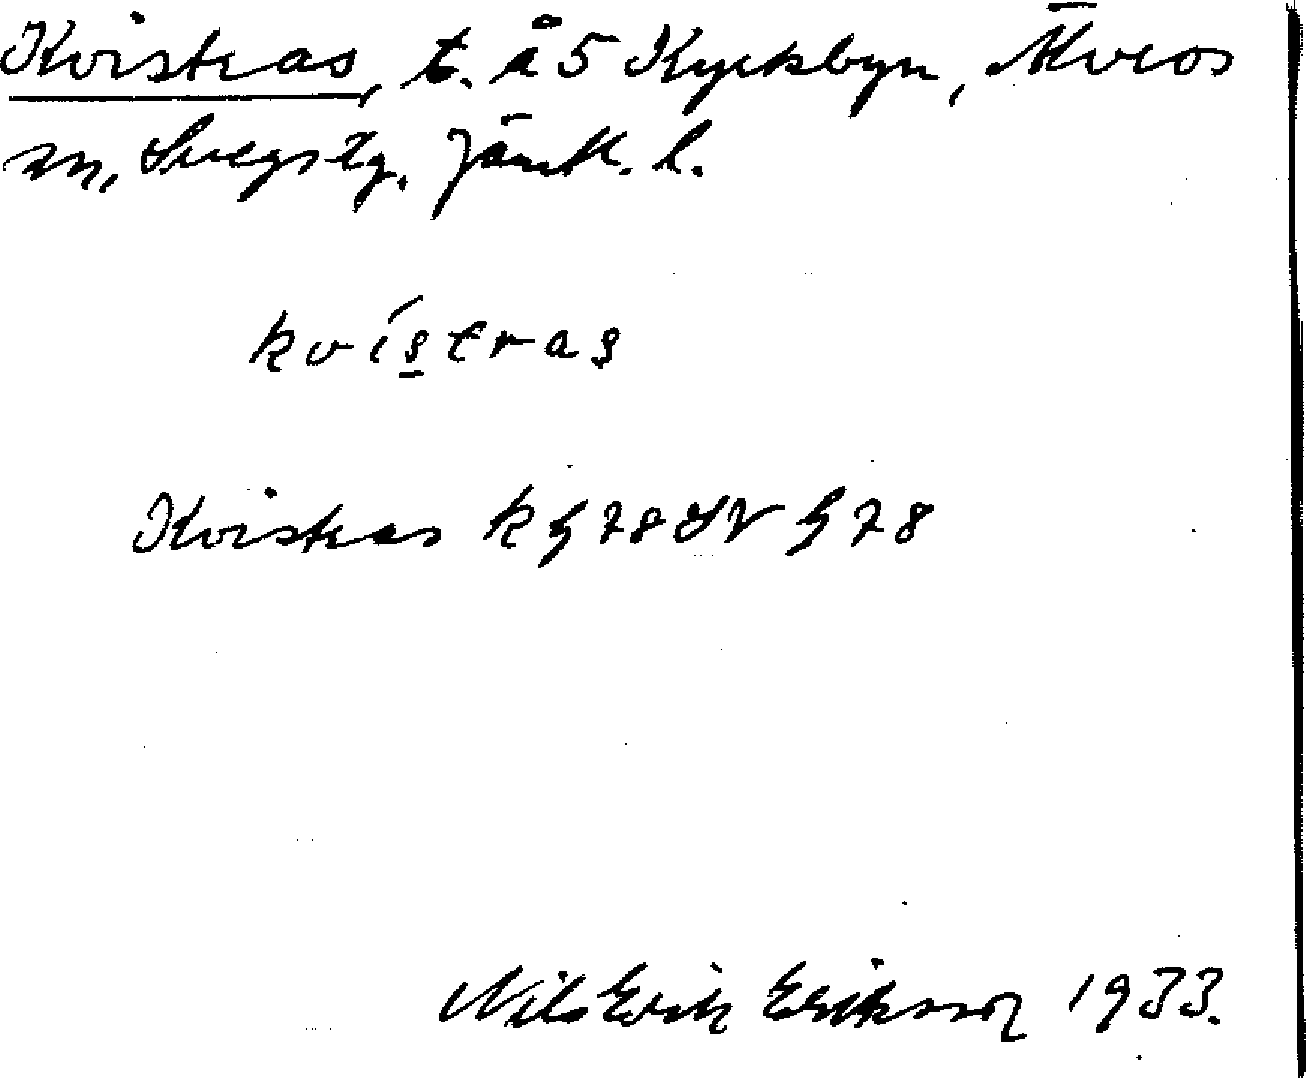 Kvistras, t. å 5 Kyrkbyn, Älvros
sn, Svegs tg. Jämtl. l.
kvístras
Kvistras k § 78 SV § 78
Nils Erik Eriksson 1933.